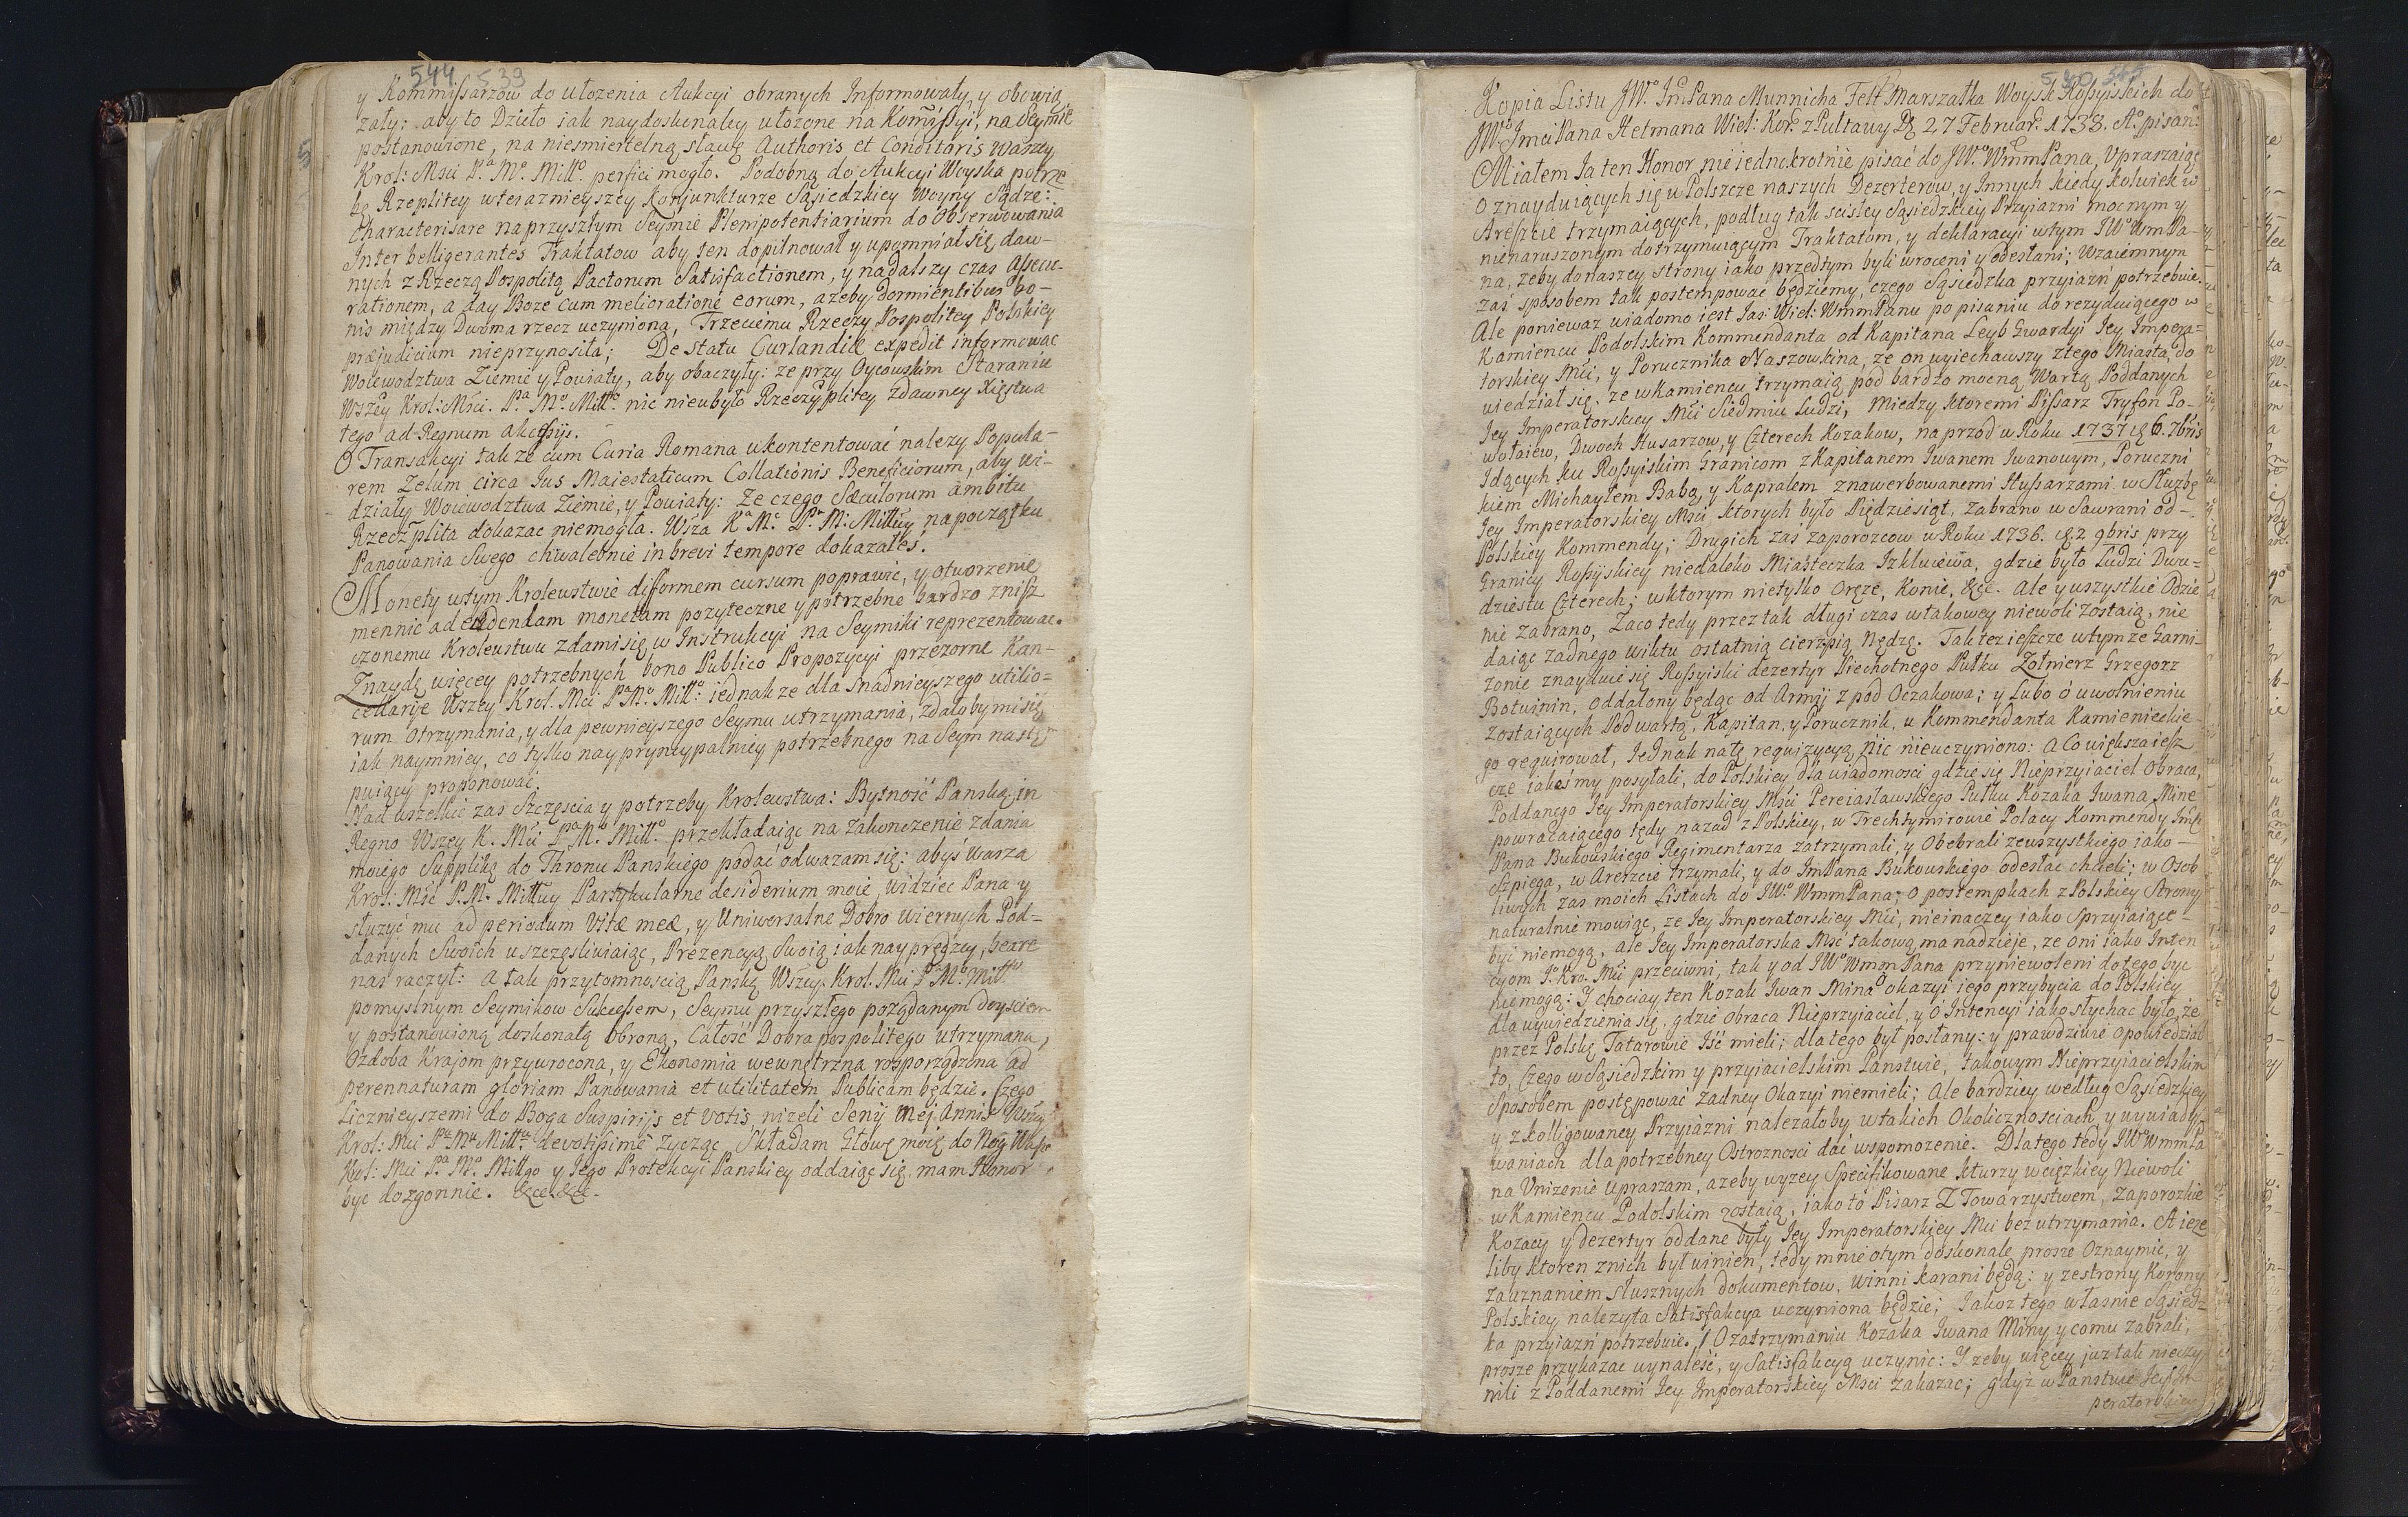 544 539
y Kommissarzow do ułozenia Aukcyi obranych Informowały, y obowią
zały: aby to Dzieło iak naydoskonaley ułozone na Komissyi, na Seymie
postanowione, na niesmiertelną sławę Authoris et Conditoris Waszey
Krol: Msci Pa. Mo. Mitto. perfici mogło. Podobną do Aukcyi Woyska potrze
bę Rzeplitey wteraznieyszey Konjunkturze Sąsiedzkiey Woyny Sądzę:
Characterisare na przyszłym Seymie Plenipotentiarium do Obserwowania
Inter belligerantes Traktatow aby ten dopilnował y upomniał się daw-
nych z Rzeczą Pospolitą Pactorum Satisfactionem, y nadalszy czas Assecu-
rationem, a day Boze cum melioratione eorum, azeby dormientibus bo-
nis między Dwoma rzecz uczyniona, Trzeciemu Rzeczy Pospolitey Polskiey
præjudicium nieprzynosiła; De statu Curlandiæ expedit informować
Woiewodztwa Ziemie y Powiaty, aby obaczyły: ze przy Oycowskim Staraniu
Wszey Krol: Msci. Pa. Mo. Mitto. nic nieubyło Rzeczyplitey zdawney Xięstwa
tego ad Regnum akcessyi.
O Transakcyi takze cum Curia Romana ukontentować nalezy Popula-
rem Zelum circa Jus Maiestaticum Collationis Beneficiorum, aby wi-
działy Woiewodztwa Ziemie, y Powiaty: Ze czego Sæculorum ambitu
Rzeczplita dokazac niemogła. Wsza Ka Mc Pa M: Mittwy na początku
Panowania Swego chwalebnie in brevi tempore dokazałeś.
Monety wtym Krolewstwie difformem cursum poprawić, y otworzenie
mennic ad edendam monetam pozyteczne y potrzebne bardzo znisz
czonemu Krolewstwu zdami się w Instrukcyi na Seymiki reprezentowac.
Znaydą więcey potrzebnych bono Publico Propozycyi przezorne Kan-
cellarye Wszey Krol. Mci Pa Mo. Mitto. iednakze dla snadnieyszego utilio-
rum otrzymania, y dla pewnieyszego Seymu utrzymania, zdałoby mi się
iak naymniey, co tylko naypryncypalniey potrzebnego na Seym nastę
puiący proponować.
Nad wszelkie zas Szczęscia y potrzeby Krolewstwa: Bytność Panską in
Regno Wszey K. Mci Pa Mo Mitto. przekładaiąc na zakonczenie zdania
moiego Supplikę do Thronu Panskiego podać odwazam się: abyś Wasza
Krol: Mść P. M. Mittwy Partykularne desiderium moie, widziec Pana y
słuzyć mu ad periodum Vitæ meæ, y Uniwersalne Dobro wiernych Pod-
danych Swoich uszczęsliwiaiąc, Prezencyą Swoią iak nayprędzey, beare
nas raczył: a tak przytomnoscią Panską Wszey Krol. Mci Pa Mo Mitto
pomyslnym Seymikow Sukcessem, Seymu przyszłego poządanym doysciem
y postanowioną doskonałą obroną, Całość Dobra pospolitego utrzymana,
Ozdoba Krajom przywrocona, y Ekonomia wewnętrzna rosporządzona ad
perennaturam gloriam Panowania et utilitatem Publicam będzie. Czego
licznieyszemi do Boga Suspirijs et votis, nizeli Senij mei Annis Wszey
Krol: Mci Pa Mu Mittu. devotissimè zycząc, Składam Głowę moią do Nog Waszey
Krol: Mci Pa Mo Mittgo y Jego Protekcyi Panskiey oddaiąc się, mam Honor
byc dozgonnie. &c. &c.
540 545
Kopia Listu JWo. Jmc Pana Munnicha Felt Marszałka Woysk Rossyiskich do
JWo Jmci Pana Hetmana Wiel: Kor: z Pułtawy D. 27 Februar: 1738. Ao. pisan:
Miałem Ja ten Honor nie iednokrotnie pisać do JWo WmmPana, Upraszaiąc
o znayduiących się w Polszcze naszych Dezerterow, y Innych kiedykolwiek w
Areszcie trzymaiących, podług tak scisłey Sąsiedzkiey Przyiazni mocnym y
nienaruszonym dotrzymuiącym Traktatom, y deklaracyi wtym JWo WmPa-
na, zeby do naszey strony iako przedtym byli wroceni y odesłani; Wzaiemnym
zaś sposobem tak postempować będziemy, czego Sąsiedzka przyiazń potrzebuie.
Ale poniewaz wiadomo iest Jas: Wiel: WmmPanu po pisaniu do rezyduiącego w
Kamiencu Podolskim Kommendanta od Kapitana Leyb Gwardyi Jey Impera-
torskiey Mci, y Porucznika Naszowkina, ze on wyiechawszy ztego Miasta, do
wiedział się, ze wKamiencu trzymaią pod bardzo mocną Wartą Poddanych
Jey Imperatorskiey Mci Siedmiu Ludzi, Miedzy ktoremi Pissarz Tryfon Po-
wołaiew, Dwoch Husarzow, y Czterech Kozakow, na przod w Roku 1737 d. 6. 7bris
Idących ku Rossyiskim Granicom z Kapitanem Iwanem Iwanowym, Poruczni
kiem Michayłem Babą, y Kapralem znawerbowanemi Hussarzami w Słuzbę
Jey Imperatorskiey Msci, ktorych było Pięddziesiąt, Zabrano w Sawrani od-
Polskiey Kommendy; Drugich zaś zaporozcow w Roku 1736. d. 2 9bris przy
Granicy Rossyiskiey niedaleko Miasteczka Izkluiewa, gdzie było Ludzi Dwu-
dziestu Czterech; wktorym nietylko Oręze, Konie, &c. Ale y wszystkie Odzie
nie zabrano, Zaco tedy przez tak długi czas w takowey niewoli zostaią, nie
daiąc zadnego wiktu ostatnią cierzpią Nędzę. Takze ieszcze wtymze Garni-
zonie znayduie się Rossyiski dezertyr Piechotnego Pułku Zołnierz Grzegorz
Botwinin, oddalony będąc od Armij z pod Oczakowa; y Lubo o uwolnieniu
zostaiących Pod wartą, Kapitan, y Porucznik, u Kommendanta Kamienieckie-
go requirował, Jednak natę requizycyą nic nieuczyniono: A Co większa iesz
cze iakesmy posyłali, do Polskiey dla wiadomosci gdzie się Nieprzyiaciel Obraca,
Poddanego Jey Imperatorskiey Msci Pereiasławskiego Pułku Kozaka Iwana Mine
powracaiącego tędy nazad z Polskiey, w Trechtymirowie Polacy Kommendy Jmć
Pana Bukowskiego Regimentarza zatrzymali, y Obebrali zewszystkiego iako-
Szpiega, w Areszcie trzymali, y do JmPana Bukowskiego odesłac chcieli; w Osob
liwych zas moich Listach do JWo WmmPana, o postempkach z Polskiey Strony
naturalnie mowiąc, ze Jey Imperatorskiey Mci, nieinaczey iako Sprzyiaiące-
być niemogą, ale Jey Imperatorska Mść takową ma nadzieję, ze oni iako Inten
cyom Jo. Kro. Mci przeciwni, tak y od JWo WmmPana przyniewoleni do tego byc
niemogą: I chociay ten Kozak Iwan Mina o okazyi iego przybycia do Polskiey
dla wywiedzienia się, gdzie obraca Nieprzyiaciel, y o Intencyi iako słychac było, że
przez Polskę Tatarowie Iść mieli; dla tego był posłany: y prawdziwie opowiedział
to, Czego w Sąsiedzkim y przyiacielskim Panstwie, takowym Nieprzyiacielskim
Sposobem postępować zadney Okazyi niemieli; Ale bardziey według Sąsiedzkiey
y zkolligowaney Przyiazni nalezałoby w takich Okolicznosciach, y wywiady-
waniach dla potrzebney Ostroznosci dać wspomozenie. Dla tego tedy JWo WmmPa
na Unizenie upraszam, azeby wyzey Specifikowane kturzy wciężkiey Niewoli
w Kamiencu Podolskim zostaią, iako to Pisarz Z Towarzystwem, Zaporozkie
Kozacy y dezertyr oddane były Jey Imperatorskiey Mci bez utrzymania. A ieze
liby ktoren znich był winien, tedy mnie otym doskonale prosze Oznaymic, y
zauznaniem słusznych dokumentow, winni karani będą: y zestrony Korony
Polskiey nalezyta Satisfakcya uczyniona będzie; Jakoz tego własnie Sąsiedz
ka przyiazń potrzebuie. / O zatrzymaniu Kozaka Iwana Miny y comu zabrali,
prosze przykazac wynaleść, y Satisfakcyą uczynic: I zeby więcey juz tak nieczy
nili z Poddanemi Jey Imperatorskiey Msci zakazac; gdyż w Panstwie Jey Im
peratorskiey